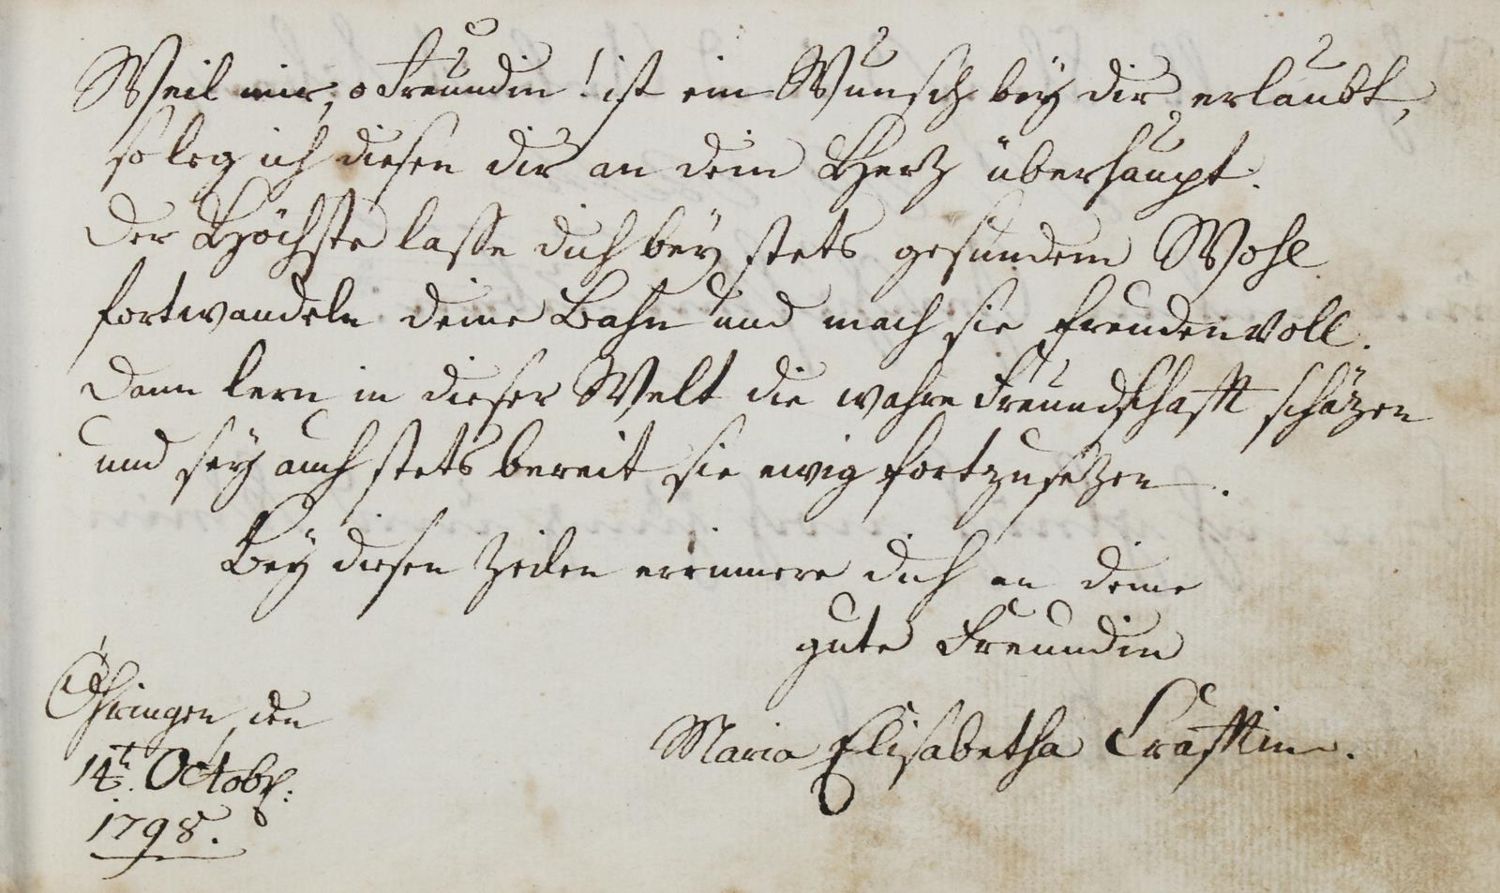 Weil mir, o Freundin! ist ein Wunsch bey dir erlaubt,
so leg ich diesen dir an dem Herz überhaupt.
Der Höchste lasse dich bey stets gesundem Wohl
fortwandeln deine Bahn und mach sie freudenvoll.
Dann lern in dieser Welt die wahre Freundschafft schäzen
und sey auch stets bereit sie ewig fortzusezen.
Bey diesen Zeilen erinnere dich an deine
gute Freundin
Maria Elisabetha Crafftin.
Öhringen, den
14t. Octobr:
1798.